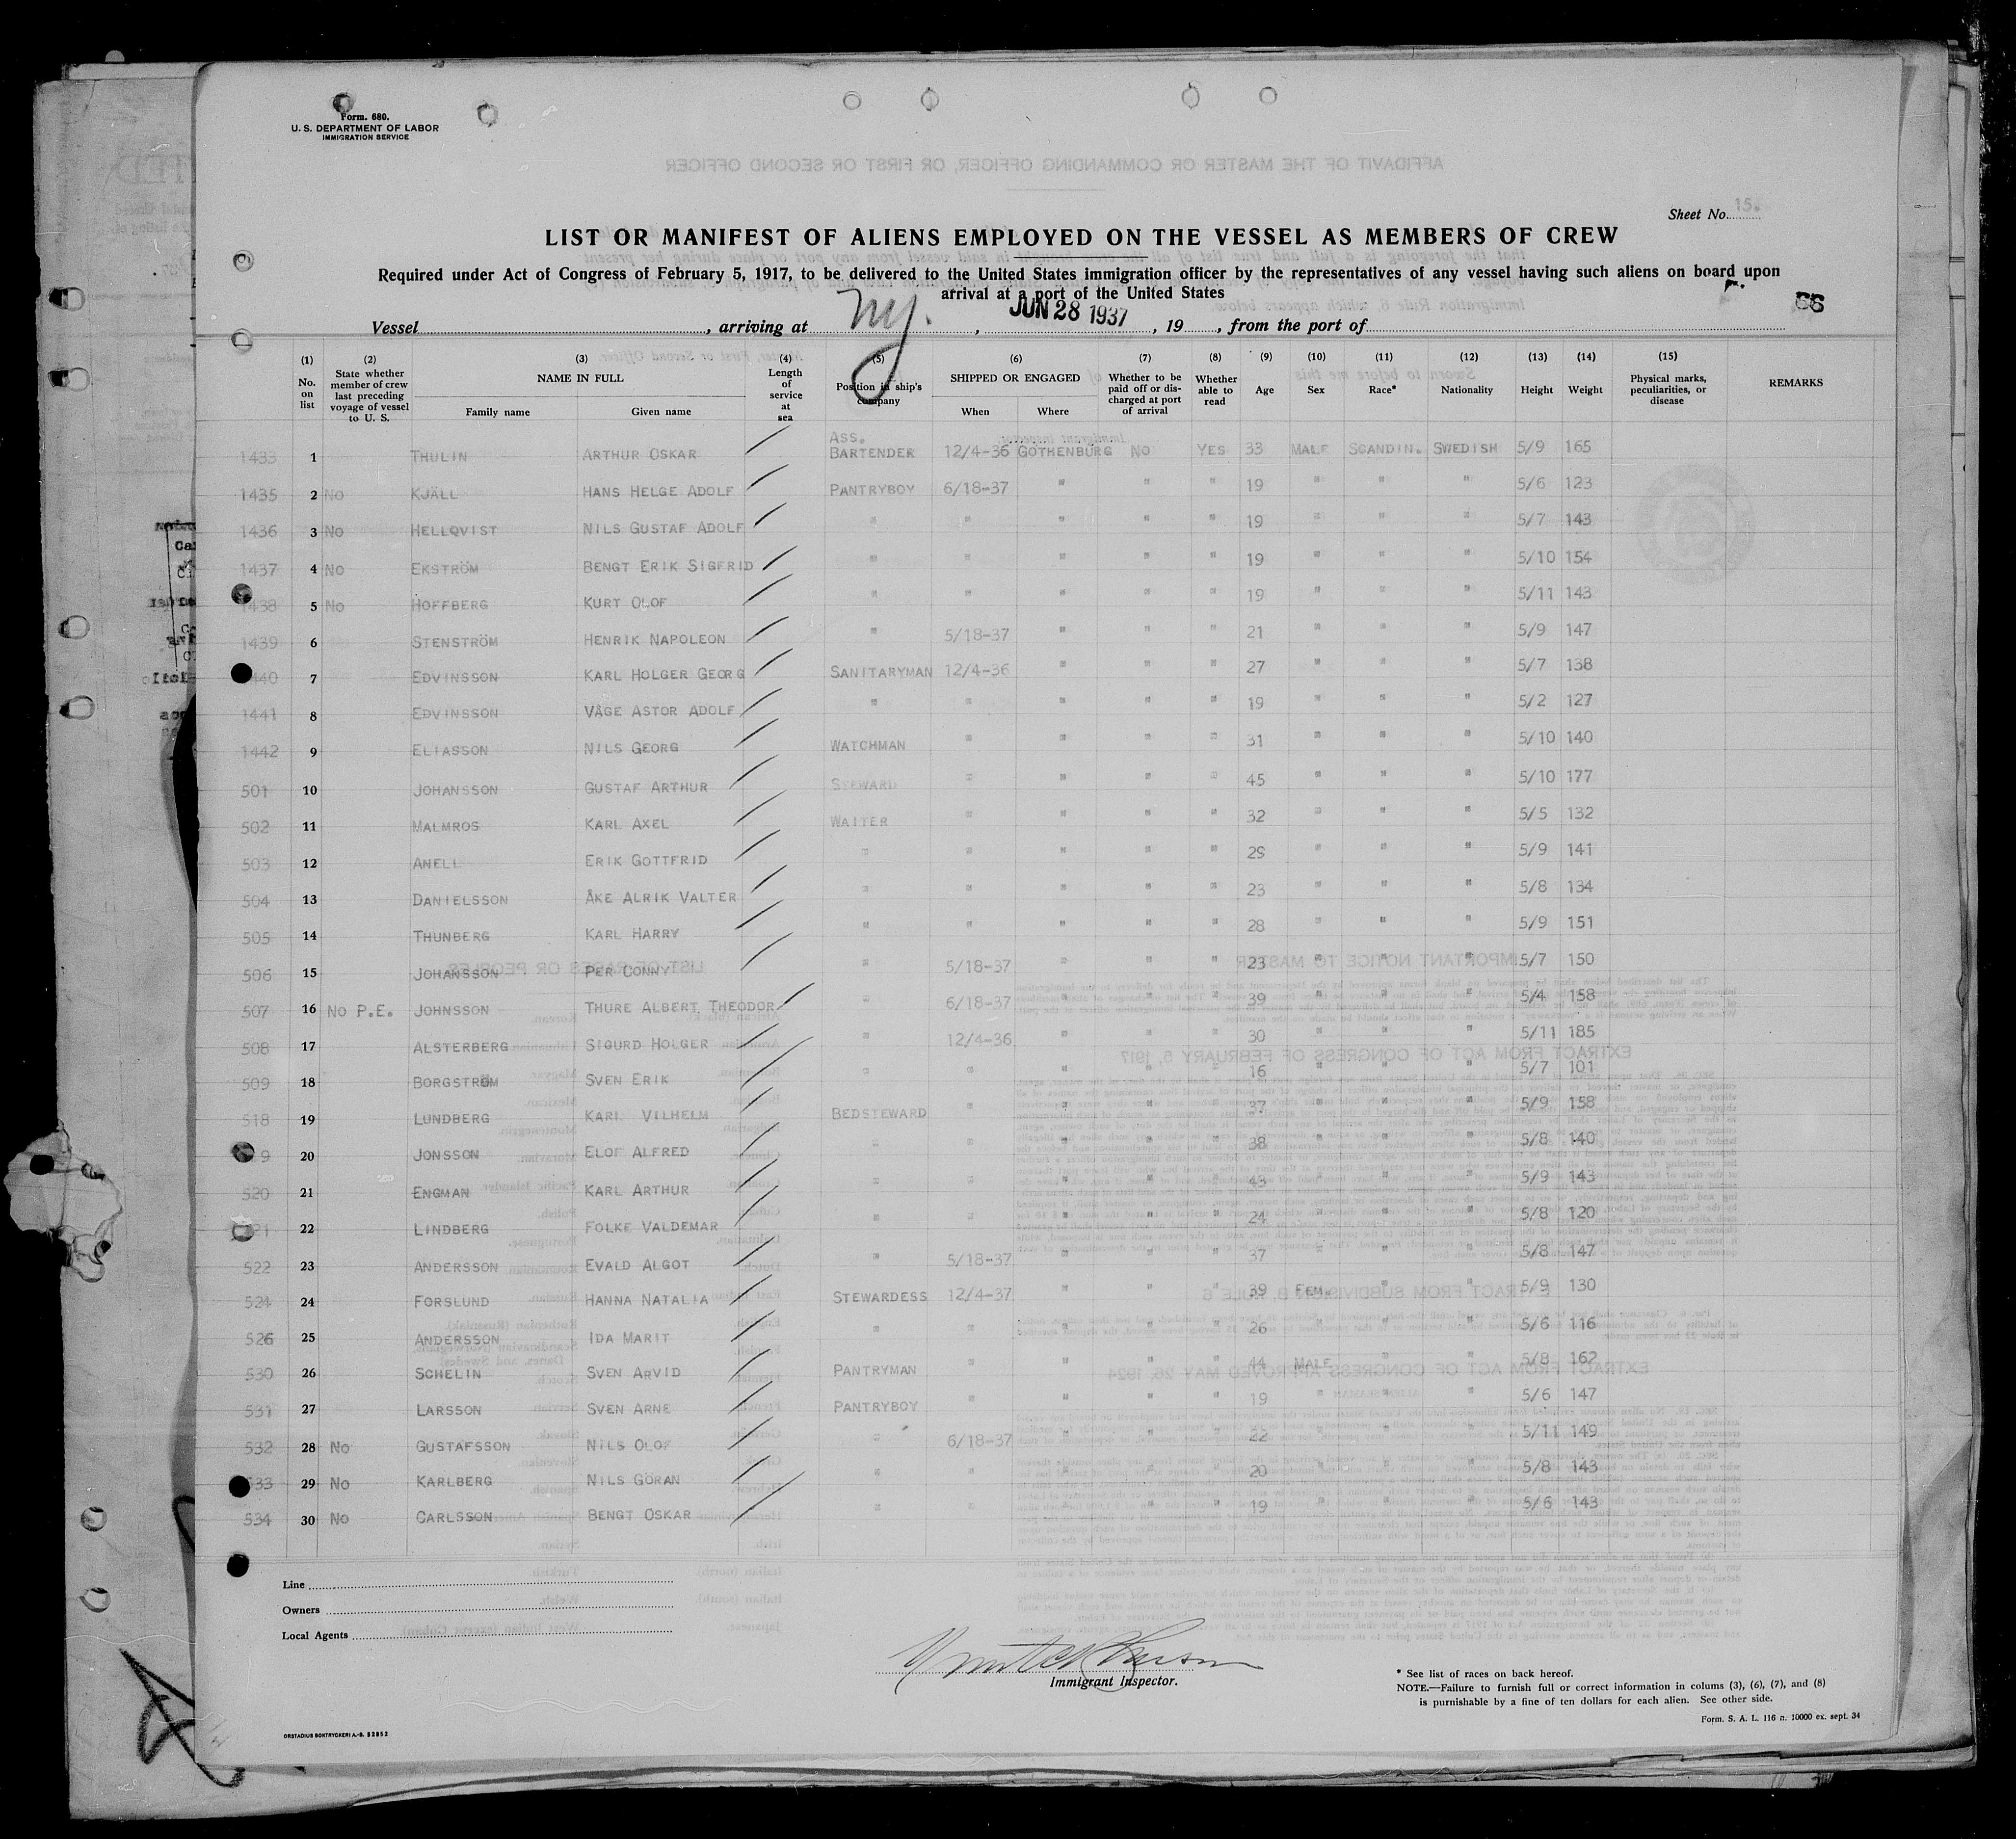 Form. 680.
U. S. DEPARTMENT OF LABOR
IMMIGRATION SERVICE
Sheet No. 15.
LIST OR MANIFEST OF ALIENS EMPLOYED ON THE VESSEL AS MEMBERS OF CREW
Required under Act of Congress of February 5, 1917, to be delivered to the United States immigration officer by the representatives of any vessel having such aliens on board upon
arrival at a port of the United States
66
Vessel , arriving at NY. , JUN 28 1937 , 19 , from the port of
(1) No. on list (2) State whether member of crew last preceding voyage of vessel to U. S. (3) NAME IN FULL Family name Given name (4) Length of service at sea (5) Position in ship's company (6) SHIPPED OR ENGAGED When Where (7) Whether to be paid off or discharged at port of arrival (8) Whether able to read (9) Age (10) Sex (11) Race* (12) Nationality (13) Height (14) Weight (15) Physical marks, peculiarities, or disease REMARKS
1433 1 THULIN ARTHUR OSKAR ASS. BARTENDER 12/4-36 GOTHENBURG NO YES 33 MALE SCANDIN. SWEDISH 5/9 165
1435 2 NO KJÄLL HANS HELGE ADOLF PANTRYBOY 6/18-37 " " " 19 " " " 5/6 123
1436 3 NO HELLQVIST NILS GUSTAF ADOLF " " " " " 19 " " " 5/7 143
1437 4 NO EKSTRÖM BENGT ERIK SIGFRID " " " " " 19 " " " 5/10 154
1438 5 NO HOFFBERG KURT OLOF " " " " " 19 " " " 5/11 143
1439 6 STENSTRÖM HENRIK NAPOLEON " 5/18-37 " " " 21 " " " 5/9 147
440 7 EDVINSSON KARL HOLGER GEORG SANITARYMAN 12/4-36 " " " 27 " " " 5/7 138
1441 8 EDVINSSON VÅGE ASTOR ADOLF " " " " " 19 " " " 5/2 127
1442 9 ELIASSON NILS GEORG WATCHMAN " " " " 31 " " " 5/10 140
501 10 JOHANSSON GUSTAF ARTHUR STEWARD " " " " 45 " " " 5/10 177
502 11 MALMROS KARL AXEL WAITER " " " " 32 " " " 5/5 132
503 12 ANELL ERIK GOTTFRID " " " " " 29 " " " 5/9 141
504 13 DANIELSSON ÅKE ALRIK VALTER " " " " " 23 " " " 5/8 134
505 14 THUNBERG KARL HARRY " " " " " 28 " " " 5/9 151
506 15 JOHANSSON PER CONNY " 5/18-37 " " " 23 " " " 5/7 150
507 16 NO P.E. JOHNSSON THURE ALBERT THEODOR " 6/18-37 " " " 39 " " " 5/4 158
508 17 ALSTERBERG SIGURD HOLGER " 12/4-36 " " " 30 " " " 5/11 185
509 18 BORGSTRÖM SVEN ERIK " " " " " 16 " " " 5/7 101
518 19 LUNDBERG KARL VILHELM BEDSTEWARD " " " " 37 " " " 5/9 158
9 20 JONSSON ELOF ALFRED " " " " " 38 " " " 5/8 140
520 21 ENGMAN KARL ARTHUR " " " " " 43 " " " 5/9 143
21 22 LINDBERG FOLKE VALDEMAR " " " " " 24 " " " 5/8 120
522 23 ANDERSSON EVALD ALGOT " 5/18-37 " " " 37 " " " 5/8 147
524 24 FORSLUND HANNA NATALIA STEWARDESS 12/4-37 " " " 39 FEM. " " 5/9 130
526 25 ANDERSSON IDA MARIT " " " " " 26 " " " 5/6 116
530 26 SCHELIN SVEN ARVID PANTRYMAN " " " " 44 MALE " " 5/8 162
531 27 LARSSON SVEN ARNE PANTRYBOY " " " " 19 " " " 5/6 147
532 28 NO GUSTAFSSON NILS OLOF " 6/18-37 " " " 22 " " " 5/11 149
533 29 NO KARLBERG NILS GÖRAN " " " " " 20 " " " 5/8 143
534 30 NO CARLSSON BENGT OSKAR " " " " " 19 " " " 5/6 143
Line
Owners
Local Agents
Immigrant Inspector.
* See list of races on back hereof.
NOTE.—Failure to furnish full or correct information in colums (3), (6), (7), and (8)
is punishable by a fine of ten dollars for each alien. See other side.
Form. S. A. L. 116 n. 10000 ex. sept. 34
ORSTADIUS BOKTRYCKERI A.-B. 52852